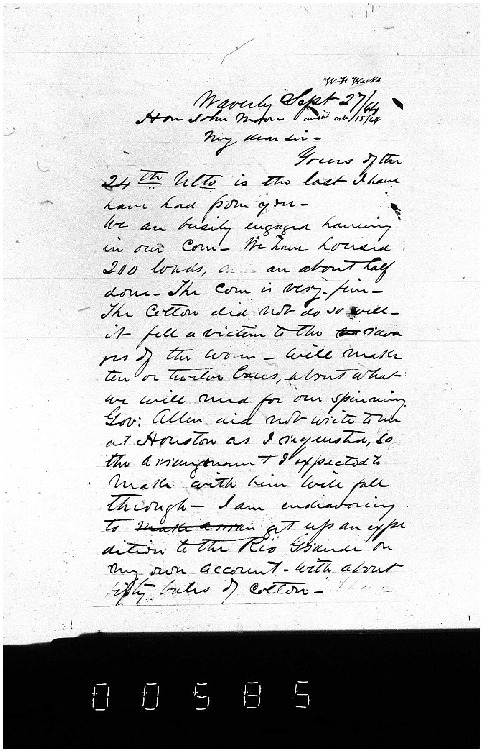 W F Weeks
Waverly Sept 27/64
Hon John Moore
My dear sir -
Yours of the
24th Ulto is the last I have
have had from you -
We are busily engaged hauling
in our Corn - We have housed
200 loads, are about half
done - The Corn is very fine -
The Cotton did not do so well -
it fell a victim to the rava
ges of the worm - will make
ten or twelve bales, about what
we will need for our spinning
Gov: Allen did not write to me
at Houston as I requested, so
the arrangement I expected to
make with him will fall
through - I am endeavoring
to make a get up an expe
dition to the Rio Grande on
my own account - with about
fifty bales of Cotton -
00585